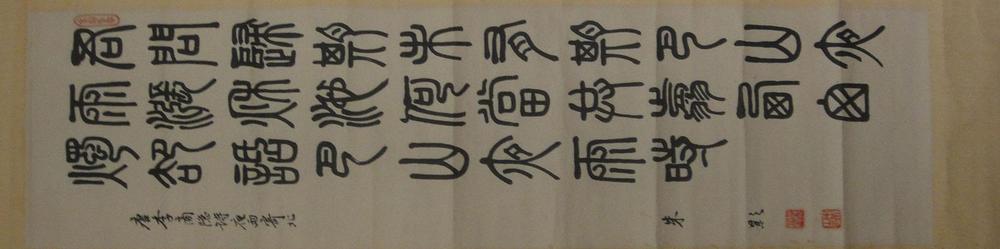 君問歸期未有期巴山夜
雨漲秋池何當共翦西窗
燭卻話巴山夜雨時
唐李商隐詩夜雨寄北
朱